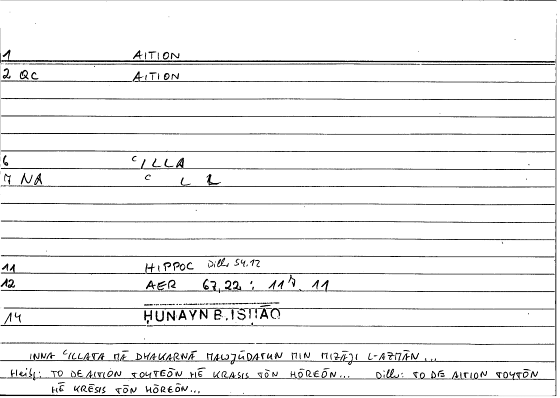 1 AITION
2 QC AITION
6 ʿILLA
7 NA ʿ L L
11 HIPPOC Dill. 54.12
12 AER 67,22 : 11ʰ. 11
14 ḤUNAYN B. ISḤĀQ
INNA ʿILLATA MĀ DHAKARNĀ MAWJŪDATUN MIN MIZĀJI L-AZMĀN ...
Heib.: TO DE AITION TOYTEŌN HĒ KRASIS TŌN HŌREŌN ... Dill.: TO DE AITION TOYTŌN
HĒ KRĒSIS TŌN HŌREŌN ...